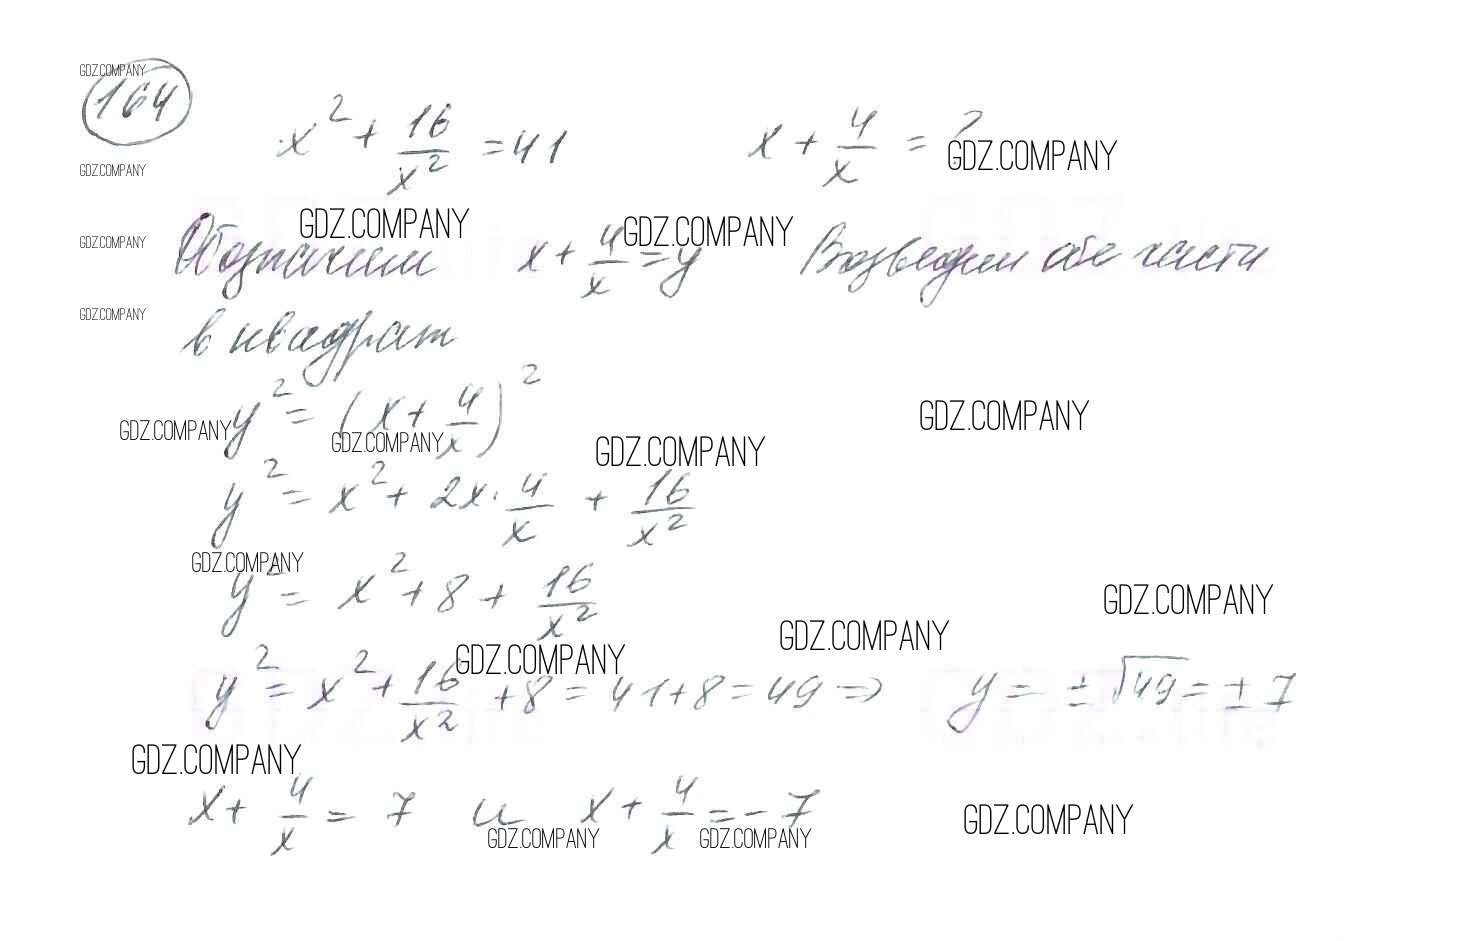 GDZ.COMPANY
164
x² + 16/x² = 41 x + 4/x = ?
GDZ.COMPANY
GDZ.COMPANY
GDZ.COMPANY GDZ.COMPANY
GDZ.COMPANY
Обозначим x + 4/x = y Возведем обе части
GDZ.COMPANY
в квадрат
y² = (x + 4/x)²
GDZ.COMPANY GDZ.COMPANY GDZ.COMPANY GDZ.COMPANY
y² = x² + 2x · 4/x + 16/x²
GDZ.COMPANY
y² = x² + 8 + 16/x²
GDZ.COMPANY
GDZ.COMPANY GDZ.COMPANY
y² = x² + 16/x² + 8 = 41 + 8 = 49 ⇒ y = ±√49 = ±7
GDZ.COMPANY
x + 4/x = 7 и x + 4/x = -7
GDZ.COMPANY GDZ.COMPANY GDZ.COMPANY